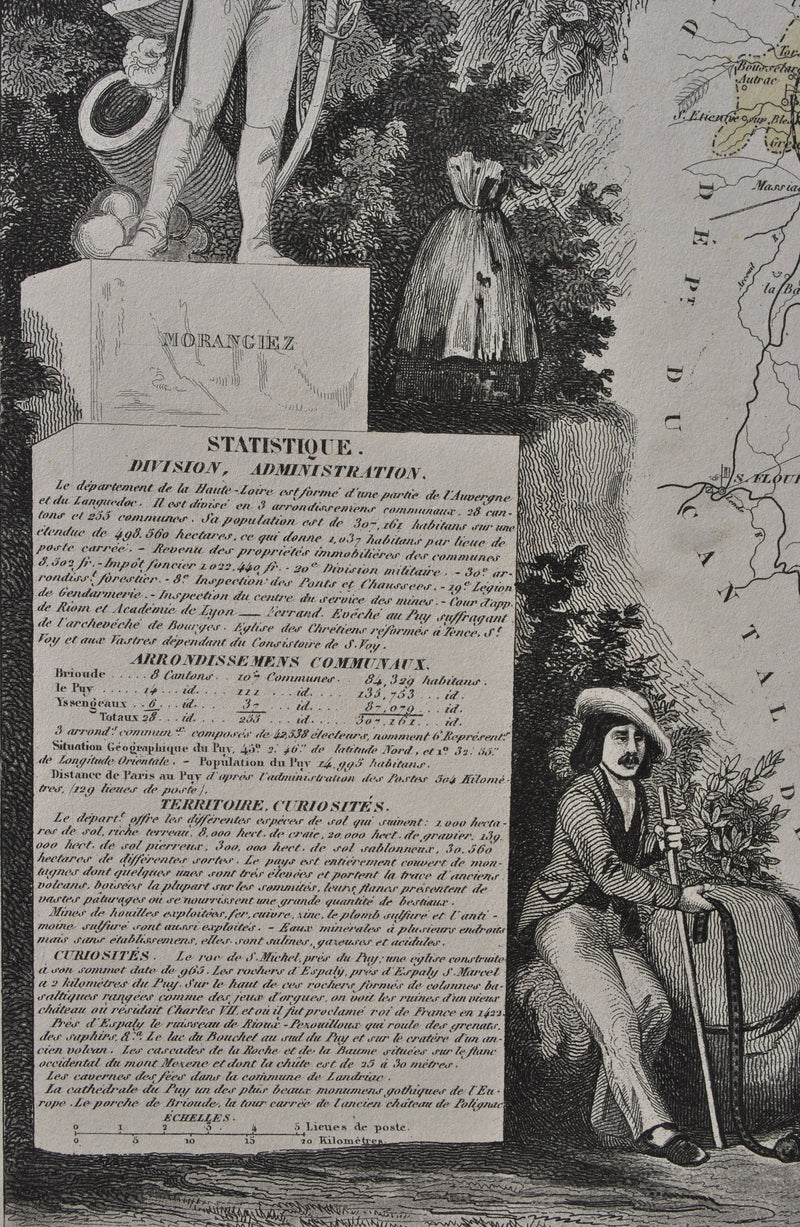 MORANGIEZ
STATISTIQUE.
DIVISION, ADMINISTRATION.
Le département de la Haute-Loire est formé d'une partie de l'Auvergne
et du Languedoc. Il est divisé en 3 arrondissemens communaux, 28 can-
tons et 255 communes. Sa population est de 307,161 habitans sur une
étendue de 498,560 hectares, ce qui donne 1,037 habitans par lieue de
poste carrée. - Revenu des propriétés immobilières des communes
8,502 fr. - Impôt foncier 1.022.440 fr. - 20e Division militaire. - 30e ar-
rondisst forestier. - 8e Inspection des Ponts et Chaussées. - 19e Légion
de Gendarmerie. - Inspection du centre du service des mines. - Cour d'app.
de Riom et Académie de Lyon — Ferrand. Evêché au Puy suffragant
de l'archevêché de Bourges. Eglise des Chrétiens réformés à Tence, St
Voy et aux Vastres dépendant du Consistoire de S. Voy.
ARRONDISSEMENS COMMUNAUX.
Brioude ..... 8 Cantons. 107 Communes. 84,329 habitans.
le Puy ..... 14 ... id. ... 111 ... id. ... 135,753 ... id.
Yssengeaux .. 6 ... id. ... 37 ... id. ... 87,079 ... id.
Totaux 28 ... id. ... 255 ... id. ... 307,161 ... id.
3 arrondt commun composés de 42,538 électeurs, nomment 6 Représentt
Situation Géographique du Puy, 45° 2. 46" de latitude Nord, et 1° 32. 55"
de Longitude Orientale. - Population du Puy 14,995 habitans.
Distance de Paris au Puy d'après l'administration des Postes 504 Kilomè-
tres, (129 lieues de poste).
TERRITOIRE, CURIOSITÉS.
Le départt offre les différentes espèces de sol qui suivent: 1,000 hecta-
res de sol, riche terreau, 8,000 hect. de craie, 20,000 hect. de gravier, 139,
000 hect. de sol pierreux, 300,000 hect. de sol sablonneux, 30,560
hectares de différentes sortes. Le pays est entièrement couvert de mon-
tagnes dont quelques unes sont très élevées et portent la trace d'anciens
volcans, boisées la plupart sur les sommités, leurs flancs présentent de
vastes pâturages ou se nourrissent une grande quantité de bestiaux.
Mines de houilles exploitées, fer, cuivre, zinc, le plomb sulfuré et l'anti-
moine sulfuré sont aussi exploités. - Eaux minerales à plusieurs endroits
mais sans établissemens, elles sont salines, gazeuses et acidules.
CURIOSITÉS. Le roc de S. Michel, près du Puy; une eglise construite
à son sommet date de 965. Les rochers d'Espaly, près d'Espaly S. Marcel
a 2 kilomètres du Puy. Sur le haut de ces rochers, formés de colonnes ba-
saltiques rangées comme des jeux d'orgues, on voit les ruines d'un vieux
château ou résidait Charles VII, et où il fut proclamé roi de France en 1422.
Près d'Espaly le ruisseau de Rioux-Pexouilloux qui roule des grenats,
des saphirs, &a. Le lac du Bouchet au sud du Puy et sur le cratère d'un an-
cien volcan. Les cascades de la Roche et de la Baume situées sur le flanc
occidental du mont Mexene et dont la chûte est de 25 à 30 mètres.
Les cavernes des fées dans la commune de Landriac.
La cathédrale du Puy un des plus beaux monumens gothiques de l'Eu-
rope. Le porche de Brioude, la tour carrée de l'ancien château de Polignac.
ÉCHELLES.
0 1 2 3 4 5 Lieues de poste.
0 5 10 15 20 Kilomètres.
D
DÉPt. DU CANTAL
DE
Bousselar
Autrac
S. Etienne sur Bles
Massiac
la Ba
S. FLOUR